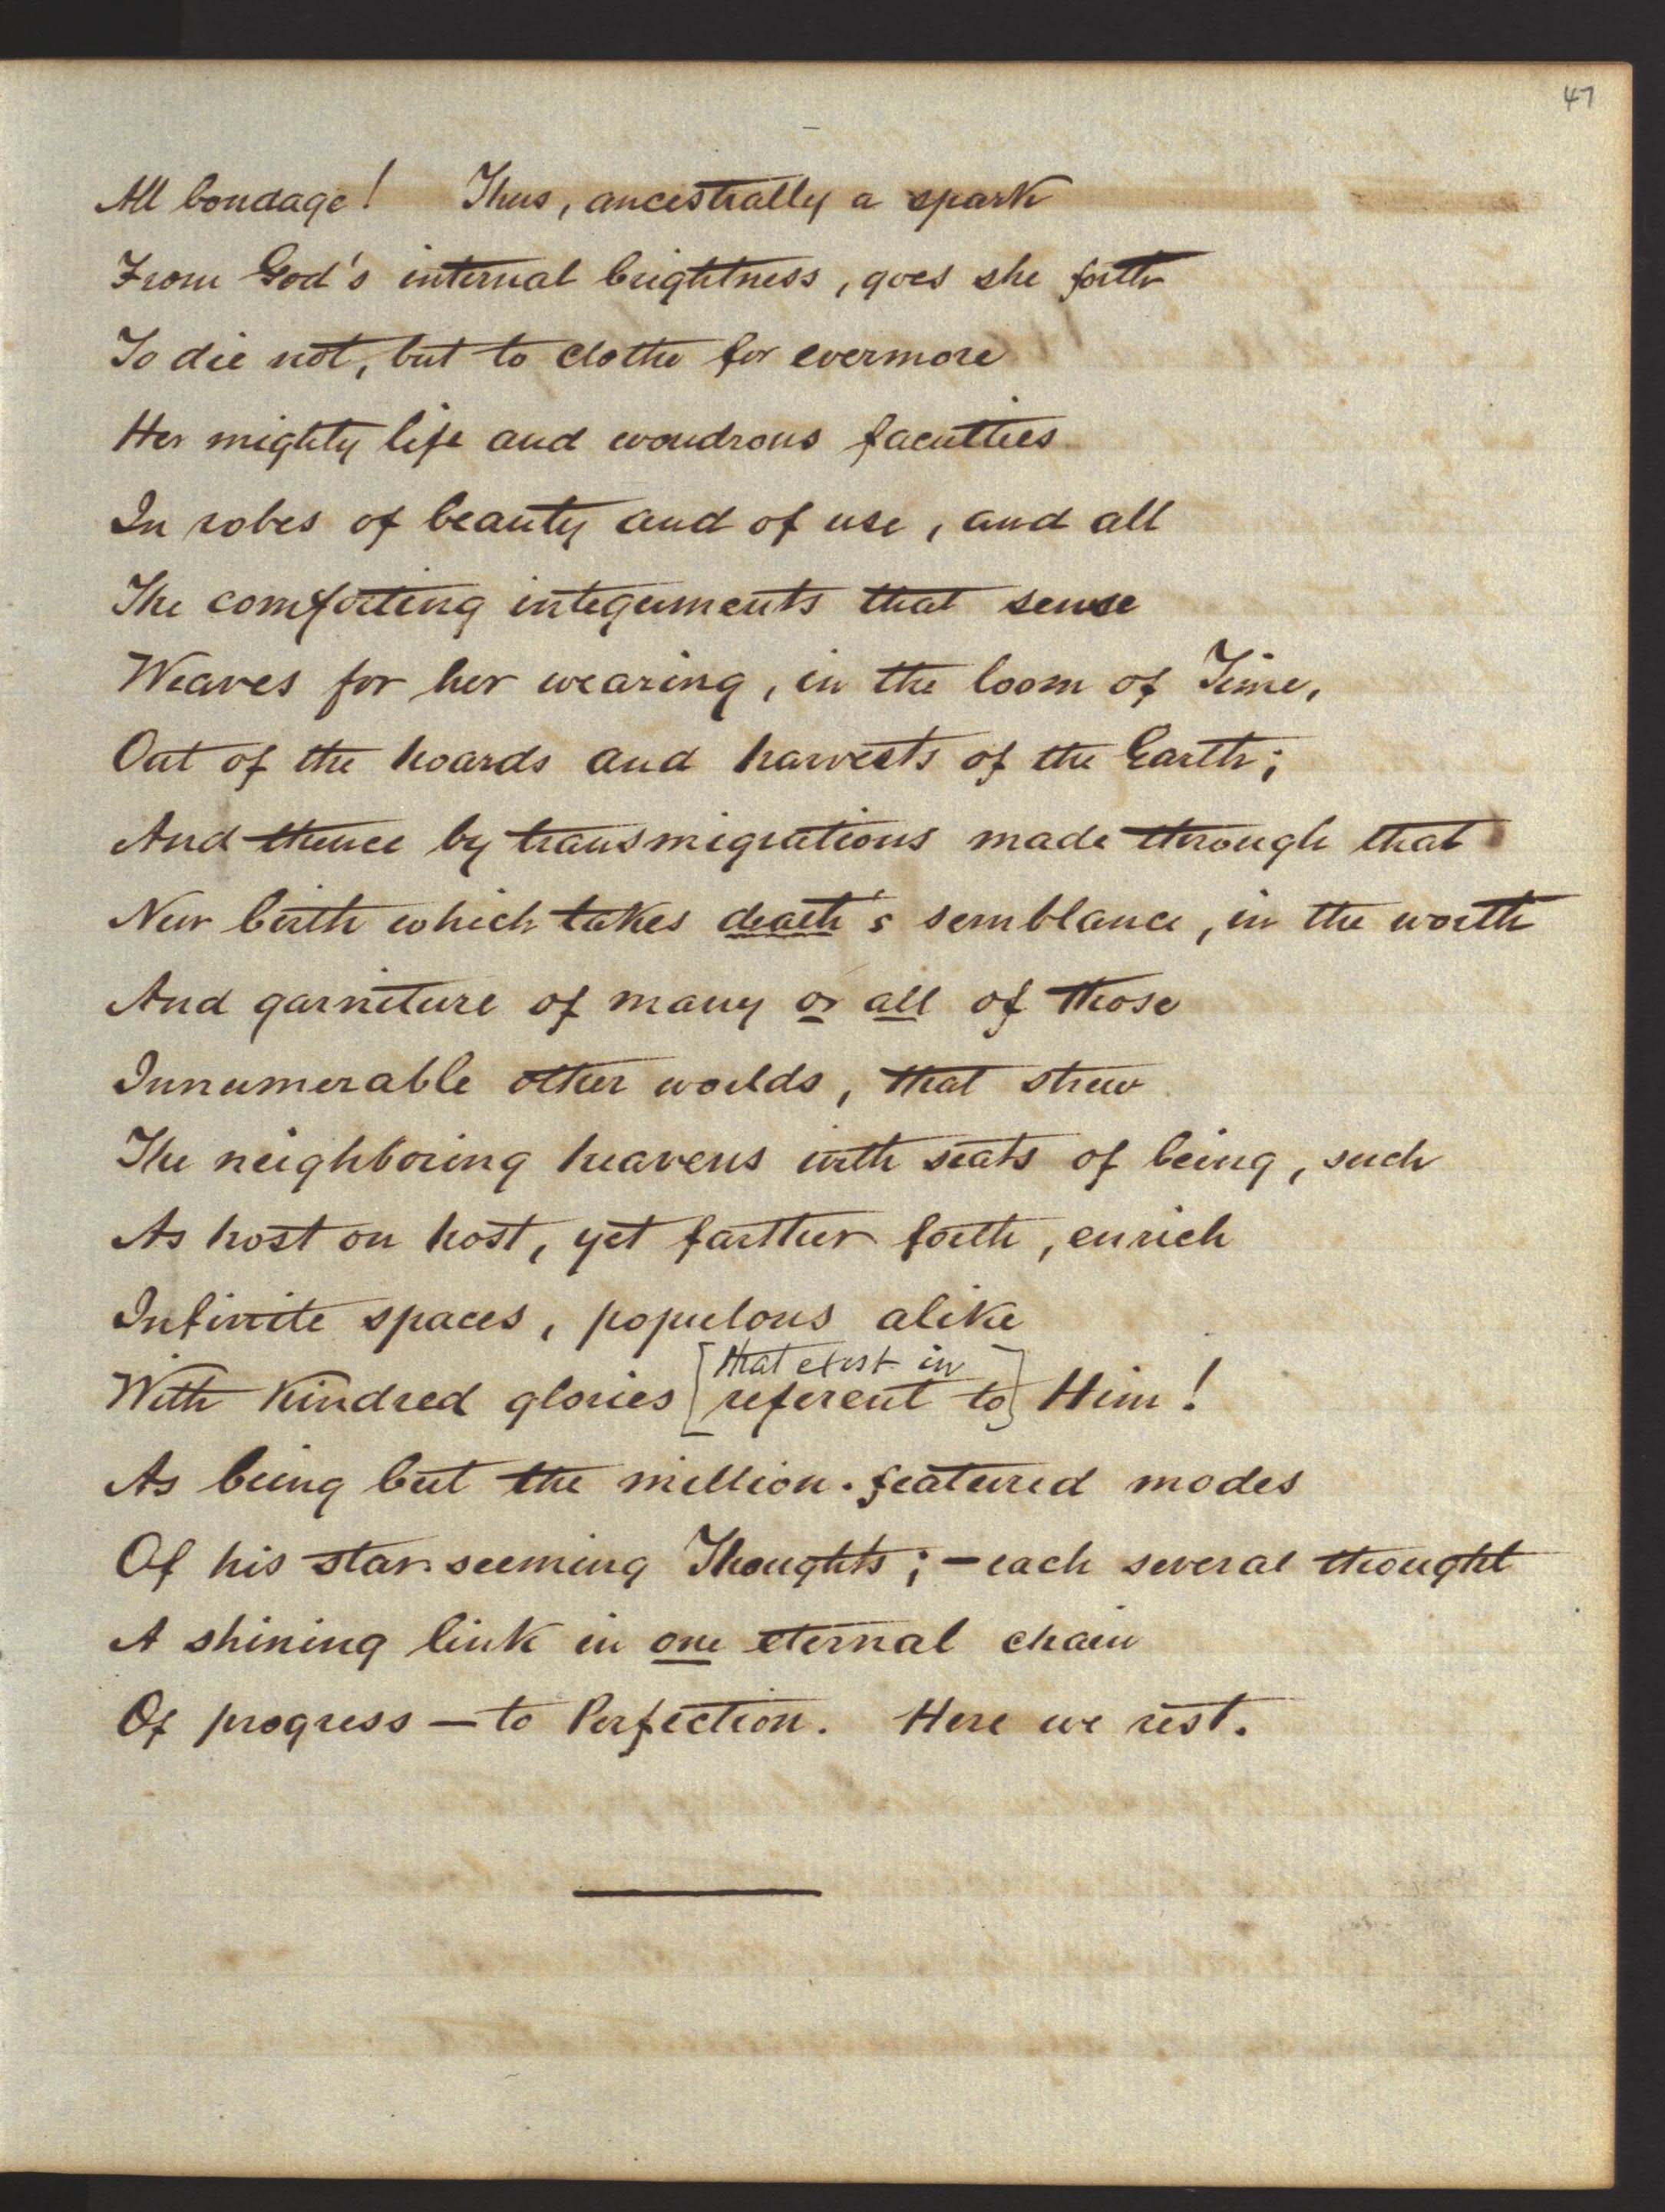 47
All bondage! Thus, ancestrally a spark
From God's internal brightness, goes she forth
To die not, but to clothe for evermore
Her mighty life and wondrous faculties
In robes of beauty and of use, and all
The comforting integuments that sense
Weaves for her wearing, in the loom of Time,
Out of the hoards and harvests of the Earth;
And thence by transmigrations made through that
New birth which takes death's semblance, in the worth
And garniture of many or all of those
Innumerable other worlds, that strew
The neighboring heavens with seats of being, such
As host on host, yet farther forth, enrich
Infinite spaces, populous alike
that exist in
With kindred glories [referent to] Him!
As being but the million-featured modes
Of his star-seeming Thoughts; – each several thought
A shining link in one eternal chain
Of progress – to Perfection. Here we rest.